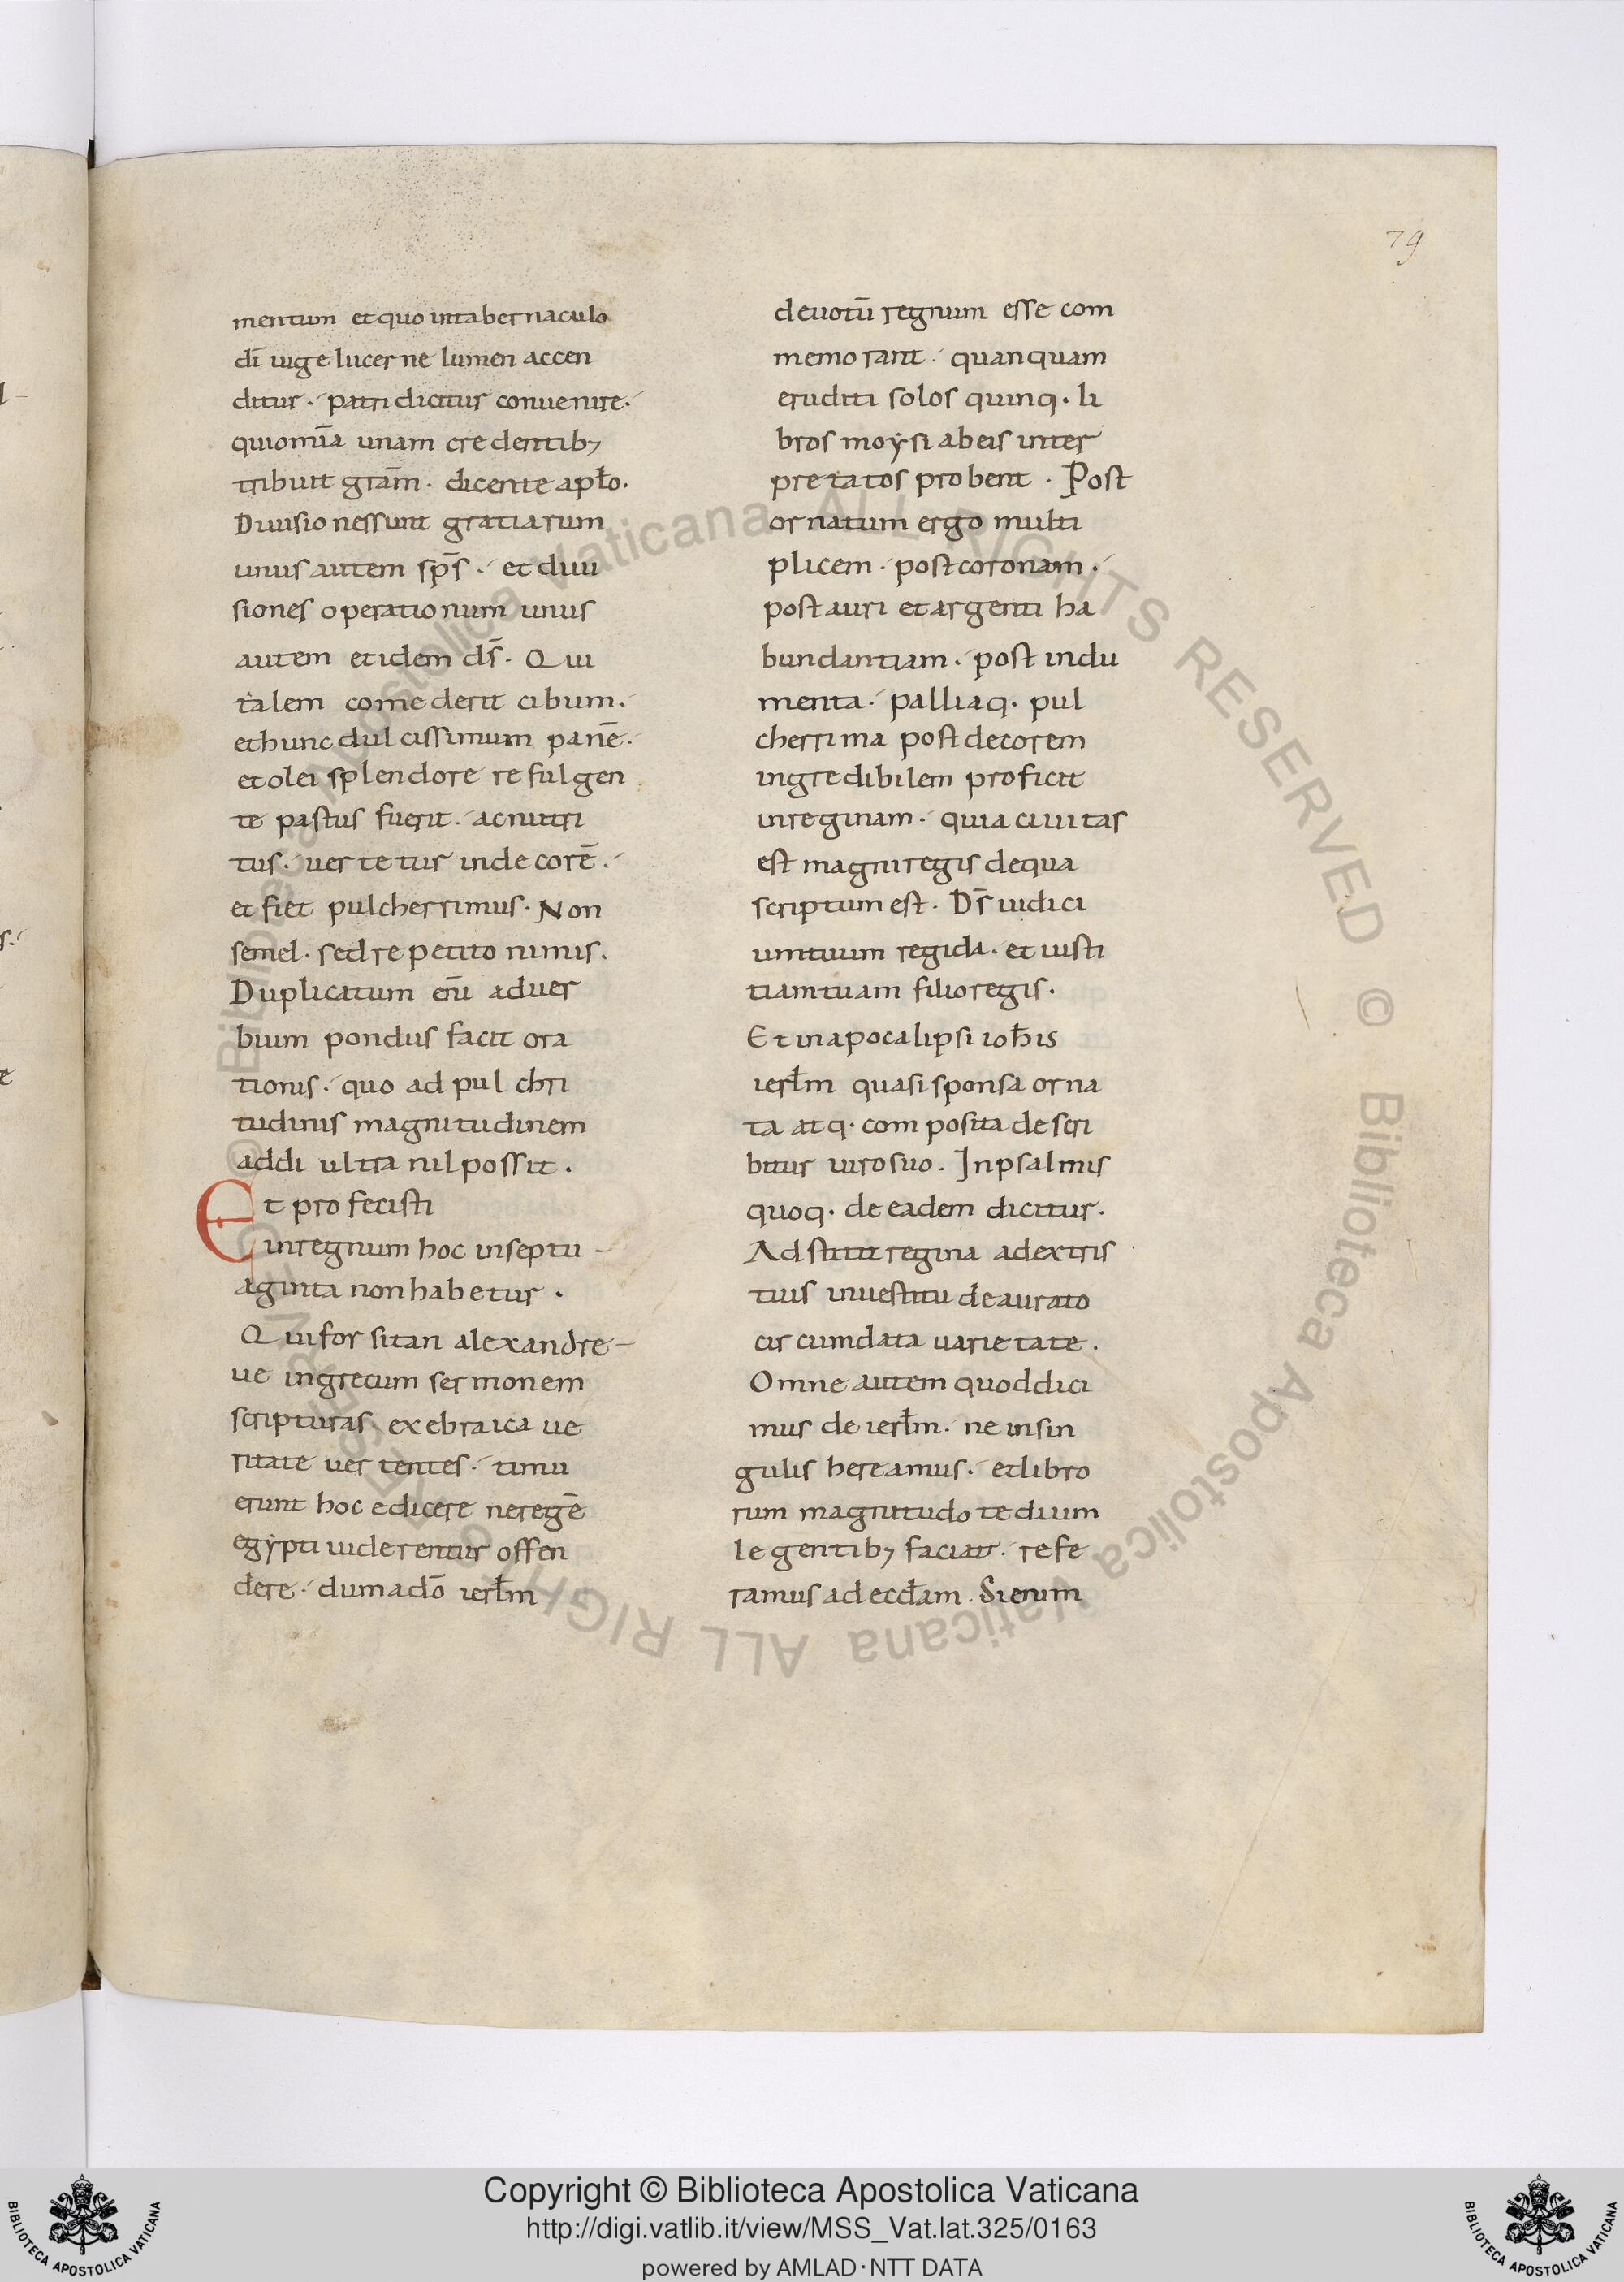 79
mentum et quo in tabernaculo
dī iuge lucerne lumen accen
ditur · patri dicitur convenire ·
qui om̄ia unam credentib;
tribuit grām · dicente apło ·
Divisiones sunt gratiarum
unus autem sp̄s · et divi
siones operationum unus
autem et idem ds̄ · Qui
talem comederit cibum ·
et hunc dulcissimum panē ·
et olei splendore refulgen
te pastus fuerit · ac nutri
tus · vertetur in decorē ·
et fiet pulcherrimus · Non
semel · sed repetito nimis ·
Duplicatum eni̅ adver
bium pondus facit ora
tionis · quo ad pulchri
tudinis magnitudinem
addi ultra nil possit ·
Et profecisti
in regnum hoc in septu -
aginta non habetur ·
Qui forsitan alexandre -
ue in grecum sermonem
scripturas · ex ebraica ue
ritate vertentes · timu
erunt hoc edicere ne regē
egypti uiderentur offen
dere · dum adō ierłm
devotū regnum esse com
memorant · quanquam
eruditi solos quinq · li
bros moysi ab eis inter
pretatos probent · Post
ornatum ergo multi
plicem · post coronam ·
post auri et argenti ha
bundantiam · post indu
menta · palliaq · pul
cherrima post decorem
ingredibilem proficit
in reginam · quia civitas
est magni regis de qua
scriptum est · Ds̄ iudici
um tuum regi da · et iusti
tiam tuam filio regis ·
Et in apocalipsi ioħis
ierłm quasi sponsa orna
ta atq · composita descri
bitur viro suo · In psalmis
quoq · de eadem dicitur ·
Adstitit regina a dextris
tuis in uestitu deaurato
circumdata varietate ·
Omne autem quod dici
mus de ierłm · ne in sin
gulis hereamus · et libro
rum magnitudo tedium
legentib; faciat · refe
ramus ad eccłam · Si enim
© Biblioteca Apostolica Vaticana ALL RIGHTS RESERVED © Biblioteca Apostolica Vaticana ALL RIGHTS RESERVED
Copyright © Biblioteca Apostolica Vaticana
http://digi.vatlib.it/view/MSS_Vat.lat.325/0163
powered by AMLAD·NTT DATA
BIBLIOTECA APOSTOLICA VATICANA
BIBLIOTECA APOSTOLICA VATICANA